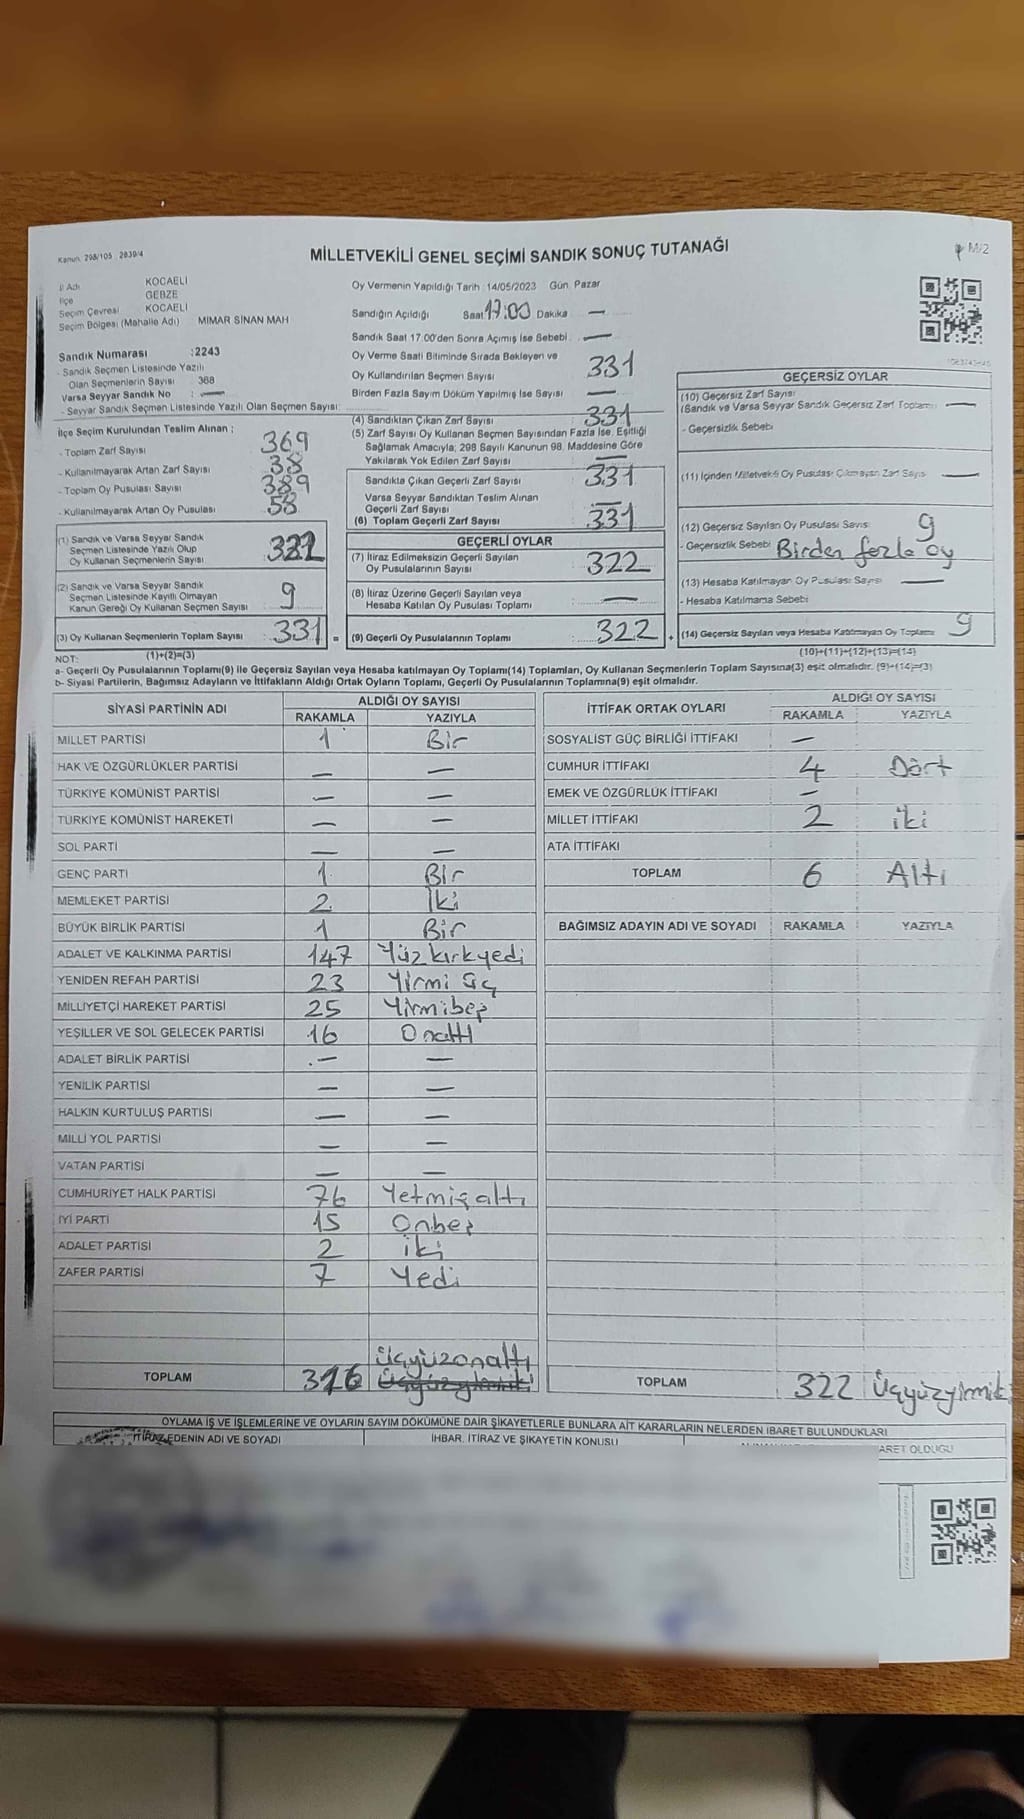 Kanun: 298/105 2839/4
MİLLETVEKİLİ GENEL SEÇİMİ SANDIK SONUÇ TUTANAĞI
M/2
İl Adı KOCAELİ
İlçe GEBZE
Seçim Çevresi KOCAELİ
Seçim Bölgesi (Mahalle Adı) MIMAR SİNAN MAH
Sandık Numarası :2243
- Sandık Seçmen Listesinde Yazılı
Olan Seçmenlerin Sayısı : 368
Varsa Seyyar Sandık No : —
- Seyyar Sandık Seçmen Listesinde Yazılı Olan Seçmen Sayısı:
İlçe Seçim Kurulundan Teslim Alınan ;
- Toplam Zarf Sayısı 369
- Kullanılmayarak Artan Zarf Sayısı 38
- Toplam Oy Pusulası Sayısı 389
- Kullanılmayarak Artan Oy Pusulası 58
(1) Sandık ve Varsa Seyyar Sandık
Seçmen Listesinde Yazılı Olup
Oy Kullanan Seçmenlerin Sayısı : 322
(2) Sandık ve Varsa Seyyar Sandık
Seçmen Listesinde Kayıtlı Olmayan
Kanun Gereği Oy Kullanan Seçmen Sayısı : 9
(3) Oy Kullanan Seçmenlerin Toplam Sayısı : 331 =
Oy Vermenin Yapıldığı Tarih : 14/05/2023 Gün: Pazar
Sandığın Açıldığı Saat 17:00 Dakika —
Sandık Saat 17.00'den Sonra Açımış İse Sebebi : —
Oy Verme Saati Bitiminde Sırada Bekleyen ve
Oy Kullandırılan Seçmen Sayısı 331
Birden Fazla Sayım Döküm Yapılmış İse Sayısı —
(4) Sandıktan Çıkan Zarf Sayısı 331
(5) Zarf Sayısı Oy Kullanan Seçmen Sayısından Fazla İse, Eşitliği
Sağlamak Amacıyla; 298 Sayılı Kanunun 98. Maddesine Göre
Yakılarak Yok Edilen Zarf Sayısı —
Sandıkta Çıkan Geçerli Zarf Sayısı 331
Varsa Seyyar Sandıktan Teslim Alınan
Geçerli Zarf Sayısı —
(6) Toplam Geçerli Zarf Sayısı 331
GEÇERLİ OYLAR
(7) İtiraz Edilmeksizin Geçerli Sayılan
Oy Pusulalarının Sayısı : 322
(8) İtiraz Üzerine Geçerli Sayılan veya
Hesaba Katılan Oy Pusulası Toplamı : —
(9) Geçerli Oy Pusulalarının Toplamı : 322 +
GEÇERSİZ OYLAR
(10) Geçersiz Zarf Sayısı
(Sandık ve Varsa Seyyar Sandık Geçersiz Zarf Toplamı) —
- Geçersizlik Sebebi
(11) İçinden Milletvekili Oy Pusulası Çıkmayan Zarf Sayısı —
(12) Geçersiz Sayılan Oy Pusulası Sayısı 9
- Geçersizlik Sebebi Birden fazla oy
(13) Hesaba Katılmayan Oy Pusulası Sayısı —
- Hesaba Katılmama Sebebi
(14) Geçersiz Sayılan veya Hesaba Katılmayan Oy Toplamı 9
NOT: (1)+(2)=(3)
(10)+(11)+(12)+(13)=(14)
a- Geçerli Oy Pusulalarının Toplamı(9) ile Geçersiz Sayılan veya Hesaba katılmayan Oy Toplamı(14) Toplamları, Oy Kullanan Seçmenlerin Toplam Sayısına(3) eşit olmalıdır. (9)+(14)=(3)
b- Siyasi Partilerin, Bağımsız Adayların ve İttifakların Aldığı Ortak Oyların Toplamı, Geçerli Oy Pusulalarının Toplamına(9) eşit olmalıdır.
SİYASİ PARTİNİN ADI ALDIĞI OY SAYISI
RAKAMLA YAZIYLA
MİLLET PARTİSİ 1 Bir
HAK VE ÖZGÜRLÜKLER PARTİSİ — —
TÜRKİYE KOMÜNİST PARTİSİ — —
TÜRKİYE KOMÜNİST HAREKETİ — —
SOL PARTİ — —
GENÇ PARTİ 1 Bir
MEMLEKET PARTİSİ 2 İki
BÜYÜK BİRLİK PARTİSİ 1 Bir
ADALET VE KALKINMA PARTİSİ 147 Yüzkırkyedi
YENİDEN REFAH PARTİSİ 23 Yirmi üç
MİLLİYETÇİ HAREKET PARTİSİ 25 Yirmibeş
YEŞİLLER VE SOL GELECEK PARTİSİ 16 Onaltı
ADALET BİRLİK PARTİSİ — —
YENİLİK PARTİSİ — —
HALKIN KURTULUŞ PARTİSİ — —
MİLLİ YOL PARTİSİ — —
VATAN PARTİSİ — —
CUMHURİYET HALK PARTİSİ 76 Yetmişaltı
İYİ PARTİ 15 Onbeş
ADALET PARTİSİ 2 iki
ZAFER PARTİSİ 7 Yedi
TOPLAM 316 üçyüzonaltı
İTTİFAK ORTAK OYLARI ALDIĞI OY SAYISI
RAKAMLA YAZIYLA
SOSYALİST GÜÇ BİRLİĞİ İTTİFAKI —
CUMHUR İTTİFAKI 4 Dört
EMEK VE ÖZGÜRLÜK İTTİFAKI —
MİLLET İTTİFAKI 2 iki
ATA İTTİFAKI
TOPLAM 6 Altı
BAĞIMSIZ ADAYIN ADI VE SOYADI RAKAMLA YAZIYLA
TOPLAM 322 üçyüzyirmiik
OYLAMA İŞ VE İŞLEMLERİNE VE OYLARIN SAYIM DÖKÜMÜNE DAİR ŞİKAYETLERLE BUNLARA AİT KARARLARIN NELERDEN İBARET BULUNDUKLARI
İTİRAZ EDENİN ADI VE SOYADI İHBAR, İTİRAZ VE ŞİKAYETİN KONUSU